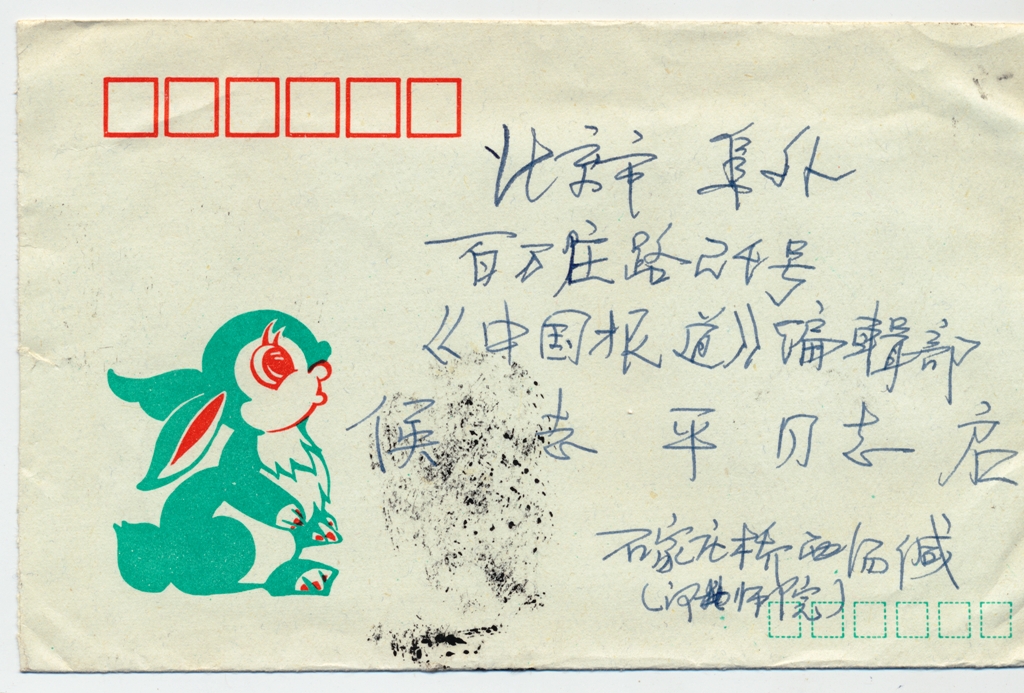 北京市 阜外
百万庄路24号
《中国报道》编辑部
侯志平同志启
石家庄桥西汤缄
(河北师院)